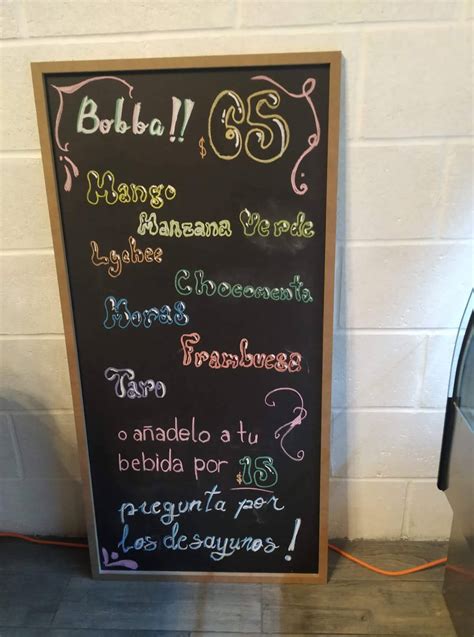 Bobba!! $65
Mango
Manzana Verde
Lychee
Chocomenta
Moras
Frambuesa
Taro
o añadelo a tu
bebida por $15
pregunta por
los desayunos!